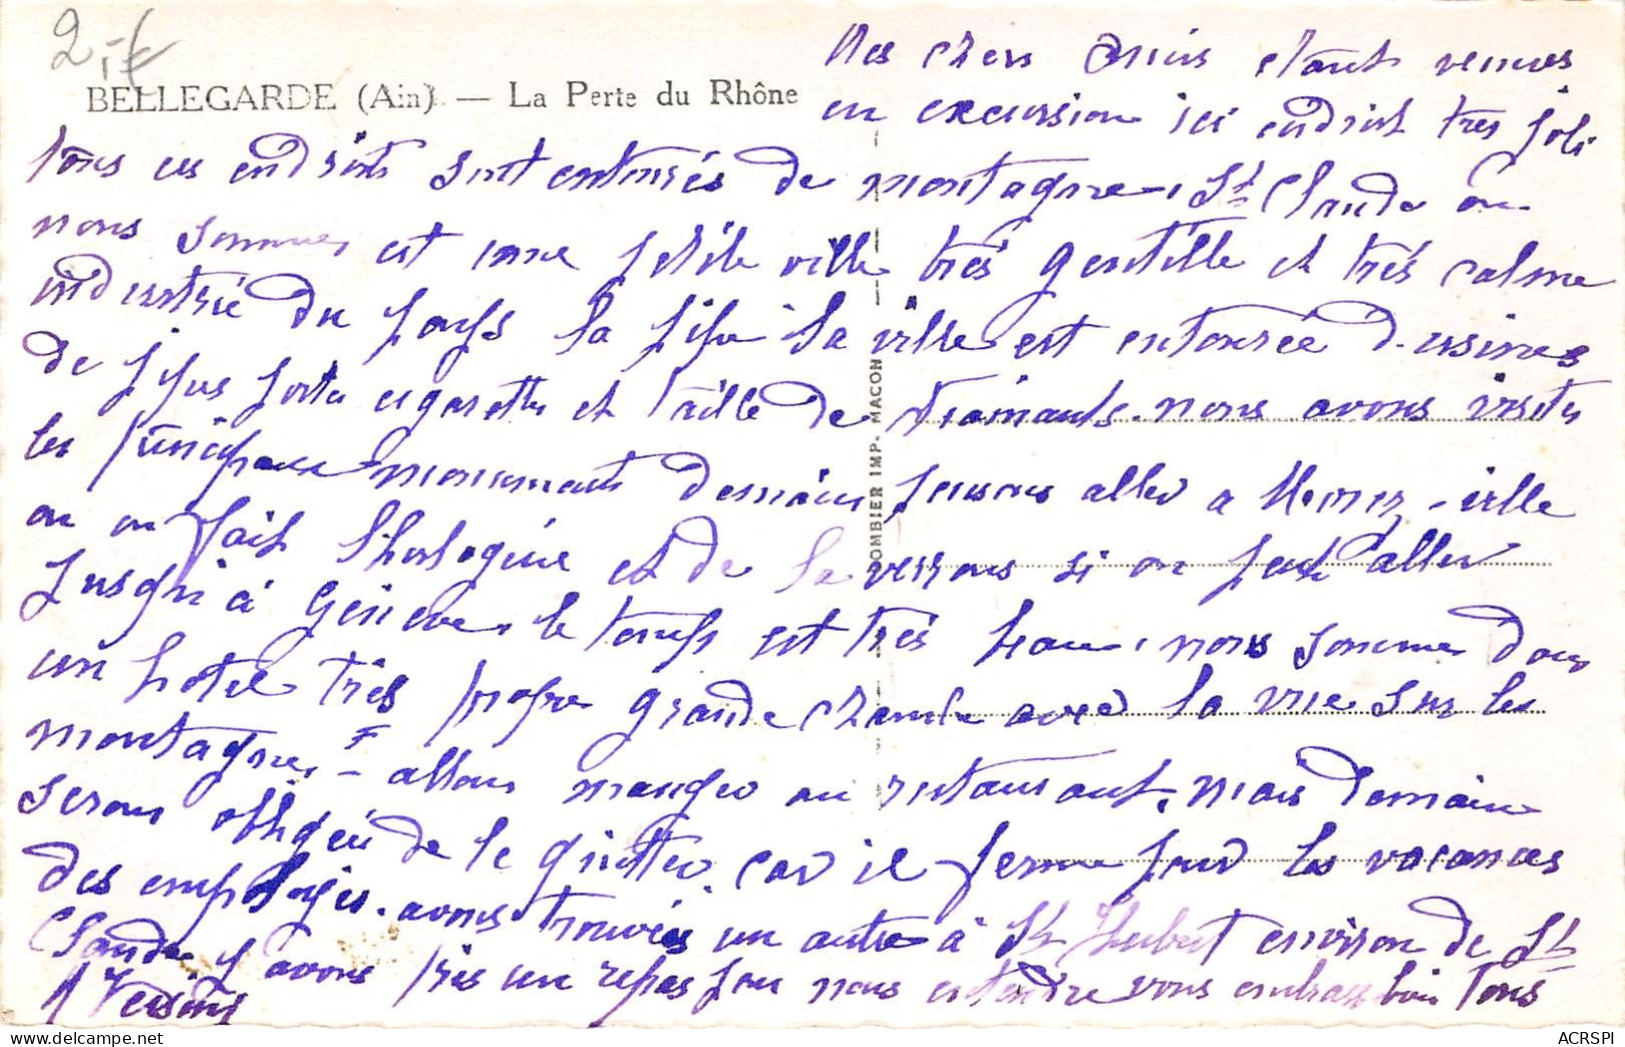 2,-€
BELLEGARDE (Ain). — La Perte du Rhône
Mes chers Amis etant venues
en excursion ici endroit tres joli
tous ces endroits sont entourés de montagnes, St Claude ou
nous sommes est une petite ville très gentille et très calme
industrie du pays la pipe la ville est entourée d'usines
de pipes porte cigarettes et taille de diamants. nous avons visite
les principaux monuments demain pensons aller a Morez - ville
ou on fait l'horlogerie et de la verrons si on peut aller
jusqu'à Genève, le temps est très beau, nous sommes dans
un hotel très propre grande chambre avec la vue sur les
montagnes, - allons manger au restaurant, mais demain
serons obligés de le quitter, car il ferme pour les vacances
des employés. avons trouvés un autre à St Hubert environ de St
Claude, y avons pris un repas pour nous entendre vous embrasse bien tous
OMBIER IMP. MACON
ACRSPI